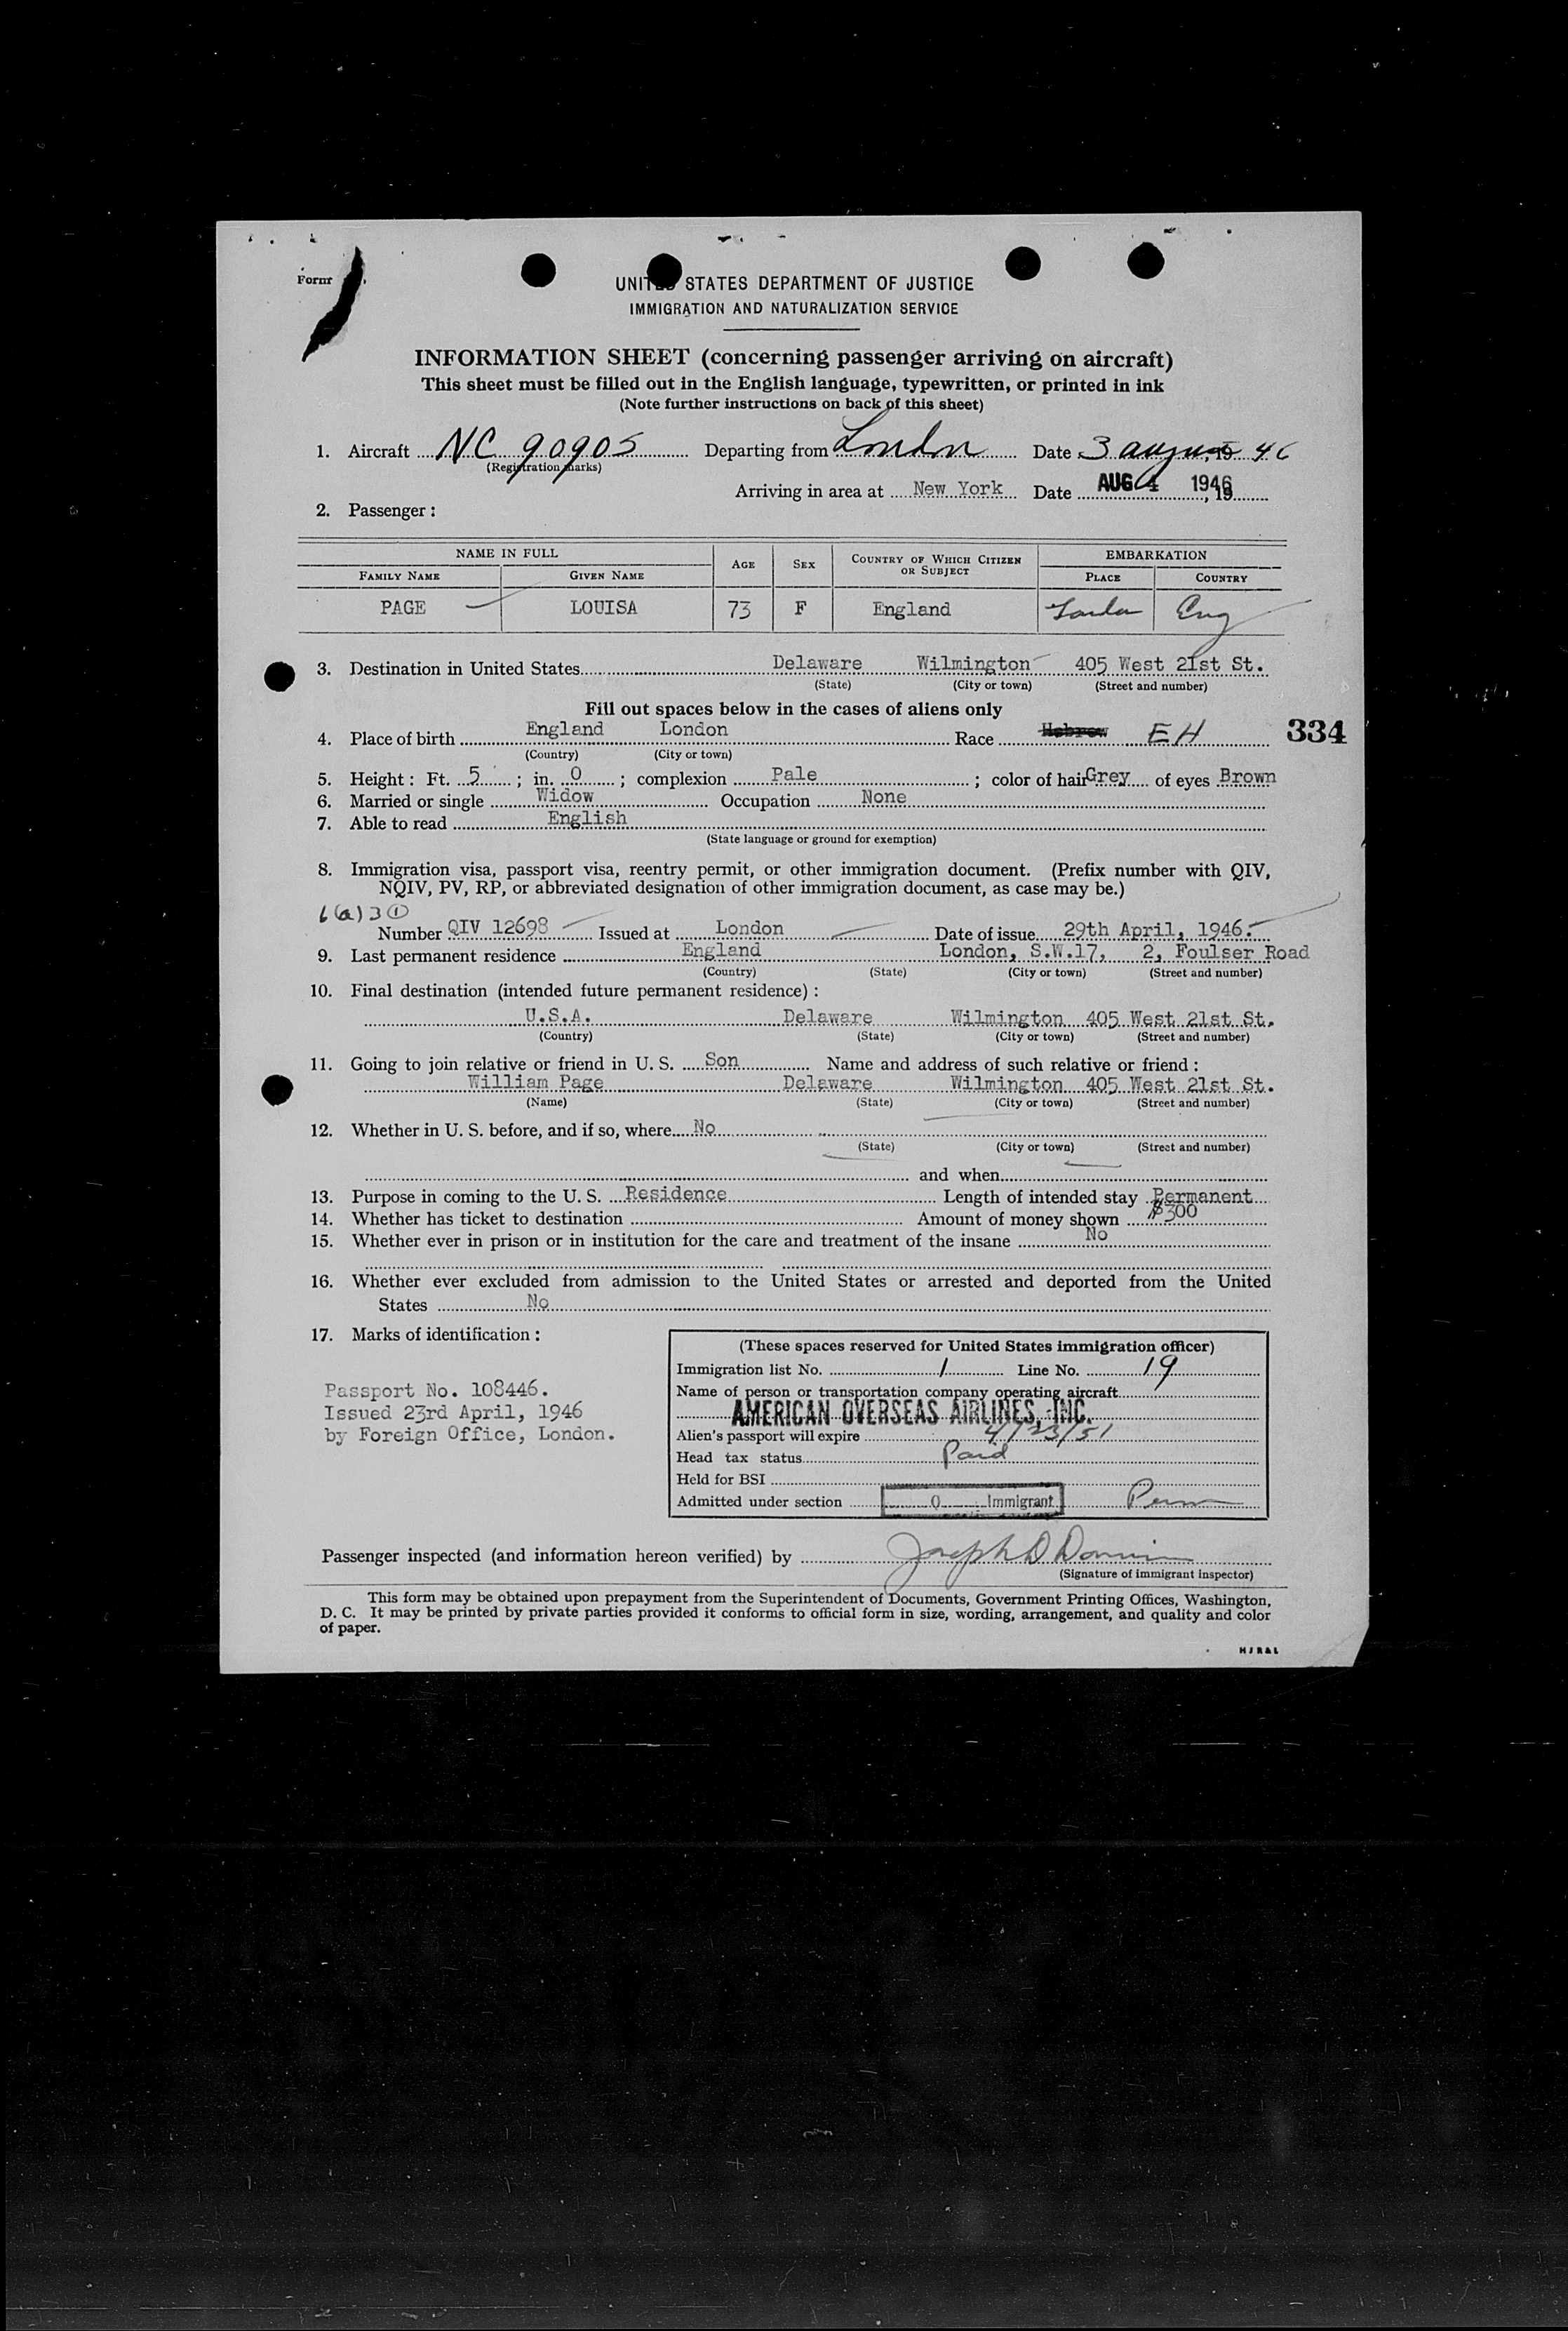 Form
UNITED STATES DEPARTMENT OF JUSTICE
IMMIGRATION AND NATURALIZATION SERVICE
INFORMATION SHEET (concerning passenger arriving on aircraft)
This sheet must be filled out in the English language, typewritten, or printed in ink
(Note further instructions on back of this sheet)
1. Aircraft NC 90905 Departing from London Date 3 August, 19 46
(Registration marks)
Arriving in area at New York Date AUG 4 1946, 19
2. Passenger:
NAME IN FULL AGE SEX COUNTRY OF WHICH CITIZEN OR SUBJECT EMBARKATION
FAMILY NAME GIVEN NAME PLACE COUNTRY
PAGE LOUISA 73 F England London Eng
3. Destination in United States Delaware Wilmington 405 West 21st St.
(State) (City or town) (Street and number)
Fill out spaces below in the cases of aliens only
4. Place of birth England London Race Hebrew EH 334
(Country) (City or town)
5. Height: Ft. 5 ; in. 0 ; complexion Pale ; color of hair Grey of eyes Brown
6. Married or single Widow Occupation None
7. Able to read English
(State language or ground for exemption)
8. Immigration visa, passport visa, reentry permit, or other immigration document. (Prefix number with QIV,
NQIV, PV, RP, or abbreviated designation of other immigration document, as case may be.)
6(a)3 1
Number QIV 12698 Issued at London Date of issue 29th April, 1946.
9. Last permanent residence England London, S.W.17, 2, Foulser Road
(Country) (State) (City or town) (Street and number)
10. Final destination (intended future permanent residence):
U.S.A. Delaware Wilmington 405 West 21st St.
(Country) (State) (City or town) (Street and number)
11. Going to join relative or friend in U. S. Son Name and address of such relative or friend:
William Page Delaware Wilmington 405 West 21st St.
(Name) (State) (City or town) (Street and number)
12. Whether in U. S. before, and if so, where No
(State) (City or town) (Street and number)
and when
13. Purpose in coming to the U. S. Residence Length of intended stay Permanent
14. Whether has ticket to destination Amount of money shown $300
15. Whether ever in prison or in institution for the care and treatment of the insane No
16. Whether ever excluded from admission to the United States or arrested and deported from the United
States No
17. Marks of identification:
Passport No. 108446.
Issued 23rd April, 1946
by Foreign Office, London.
(These spaces reserved for United States immigration officer)
Immigration list No. 1 Line No. 19
Name of person or transportation company operating aircraft
AMERICAN OVERSEAS AIRLINES, INC.
Alien's passport will expire 4/23/51
Head tax status Paid
Held for BSI
Admitted under section Q Immigrant Perm
Passenger inspected (and information hereon verified) by Joseph D
(Signature of immigrant inspector)
This form may be obtained upon prepayment from the Superintendent of Documents, Government Printing Offices, Washington,
D. C. It may be printed by private parties provided it conforms to official form in size, wording, arrangement, and quality and color
of paper.
HJR&L